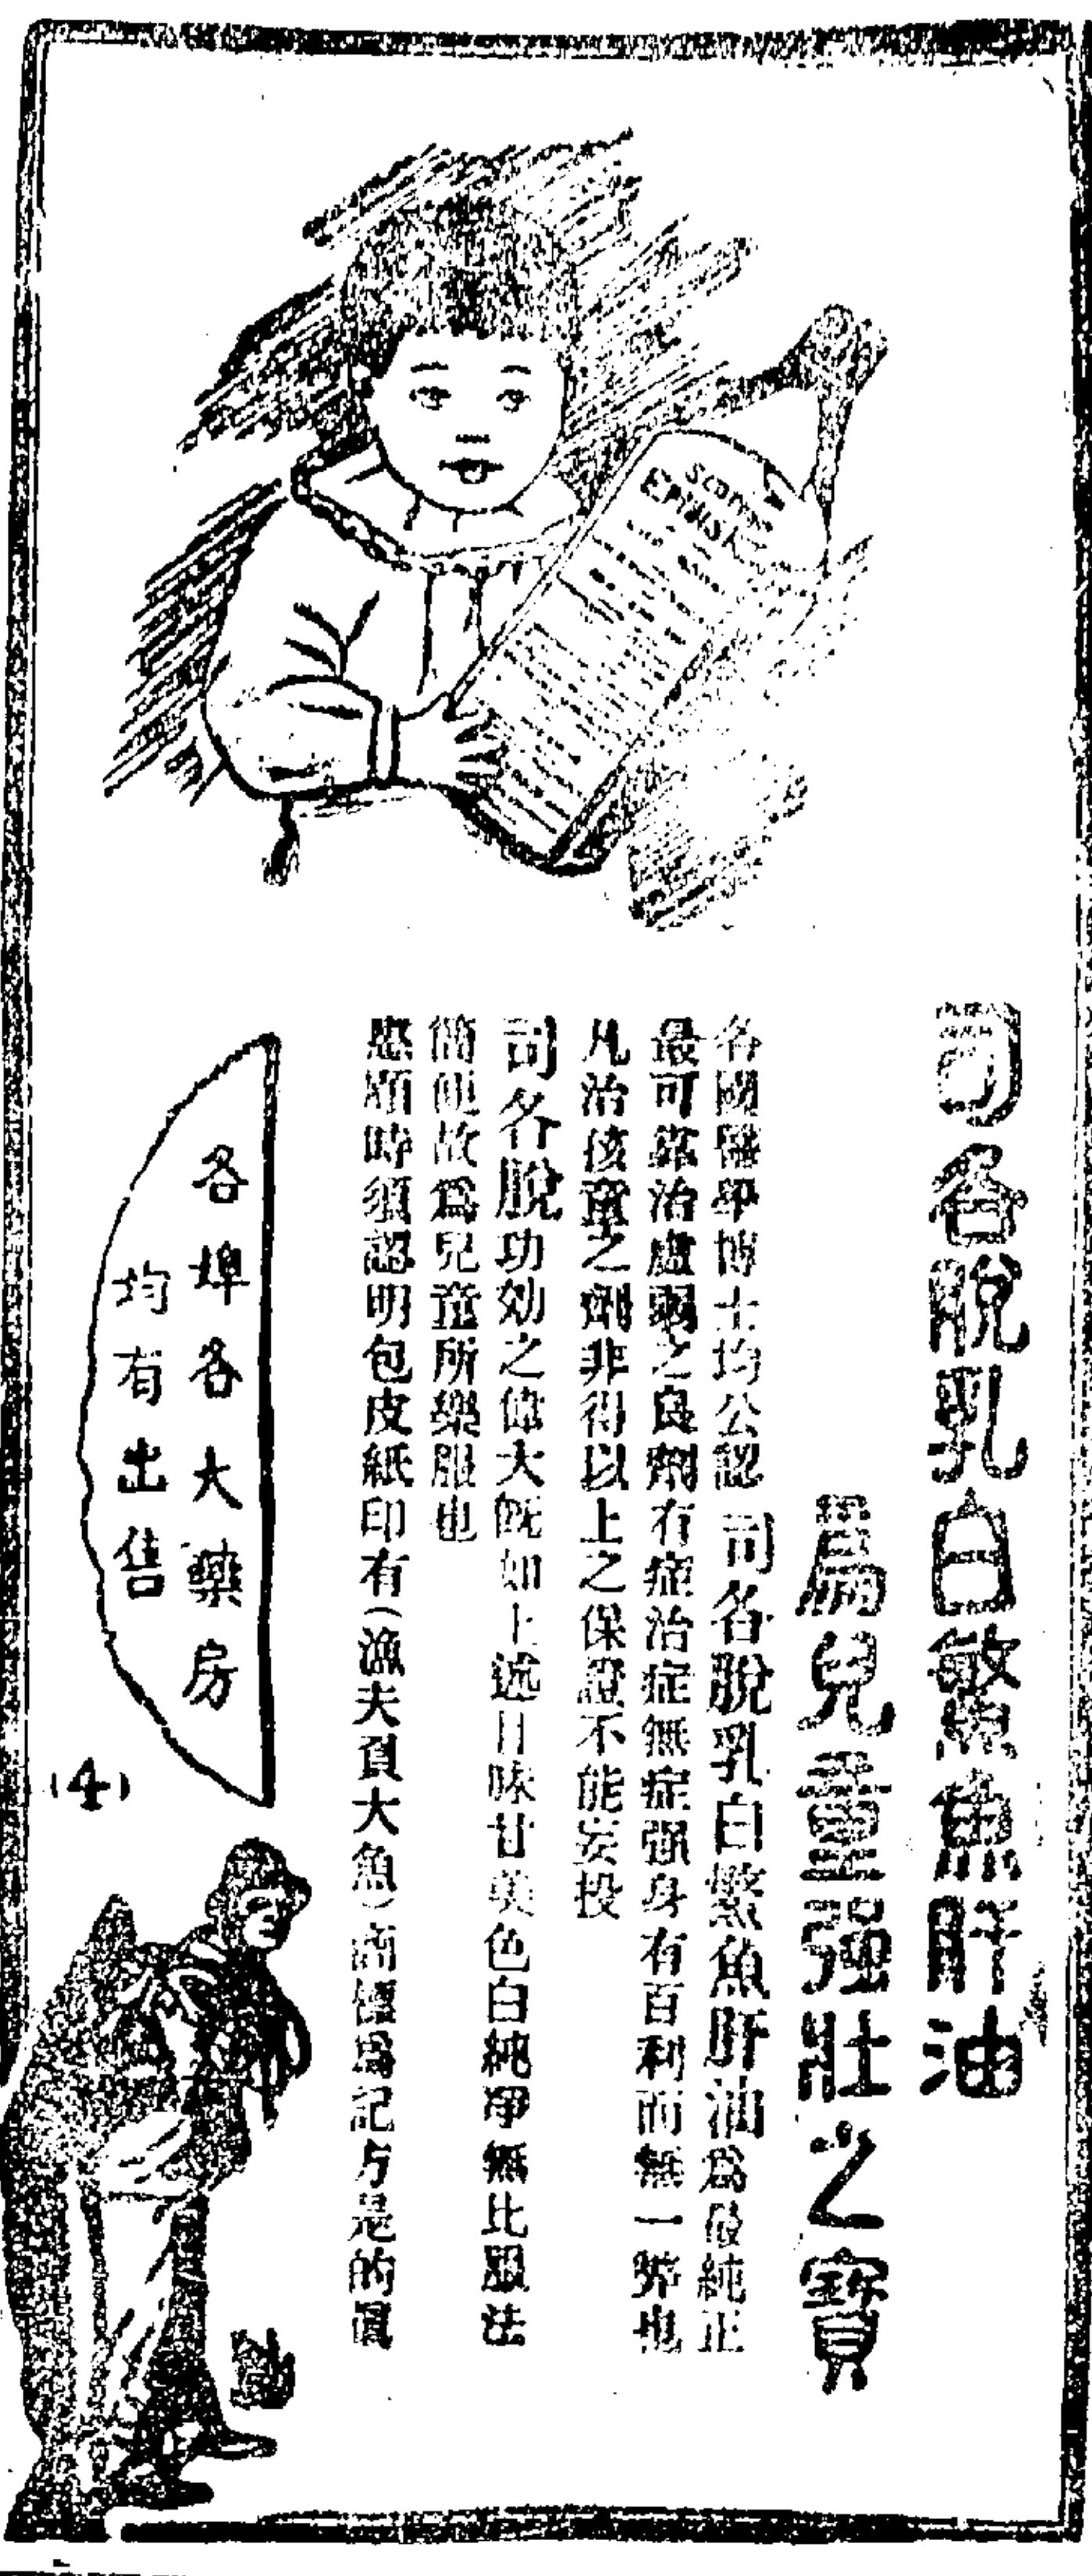 司各脫乳白鰵魚肝油
爲兒童强壯之寶
各國醫學博士均公認 司各脫乳白鰵魚肝油爲最純正
最可靠治虛弱之良劑有症治症無症强身有百利而無一弊也
凡治孩童之劑非得以上之保證不能妄投
司各脫功効之偉大旣如上述且味甘美色白純凈無比服法
簡便故爲兒童所樂服也
惠顧時須認明包皮紙印有(漁夫負大魚)商標爲記方是的眞
各埠各大藥房
均有出售
(4)
SCOTT'S
EMULSION